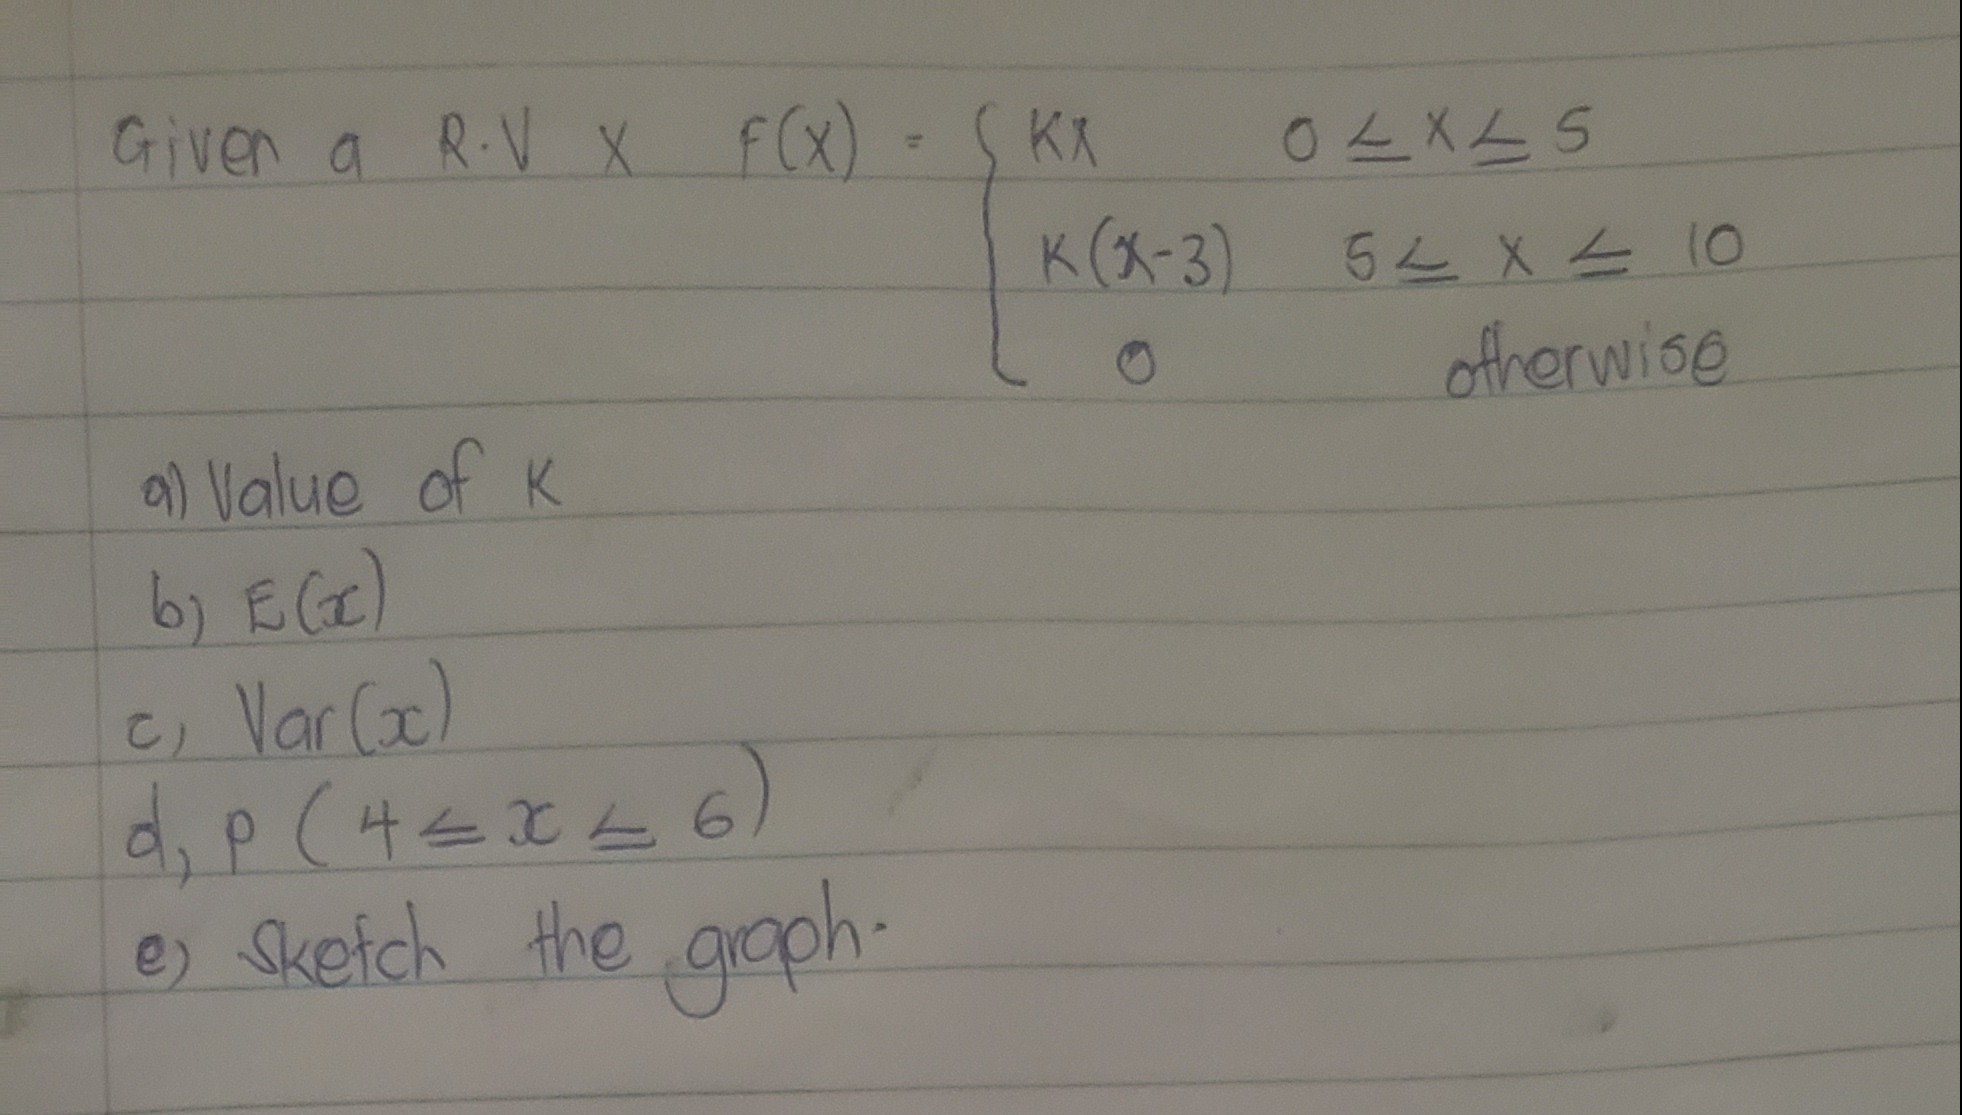 Given a R.V X F(X) = { KX 0 ≤ X ≤ 5
K(x-3) 5 ≤ X ≤ 10
0 otherwise
a) Value of K
b) E(x)
c) Var(x)
d) P(4 ≤ x ≤ 6)
e) Sketch the graph.